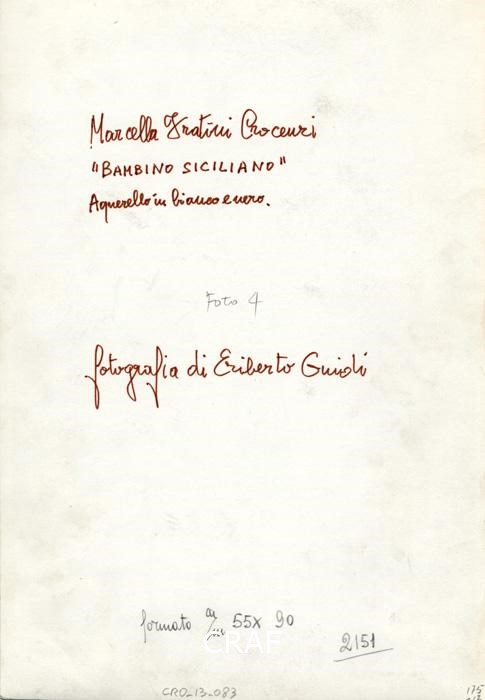 Marcella Fratini Crocenzi
"BAMBINO SICILIANO"
Aquerello in bianco e nero.
Foto 4
fotografia di Eriberto Guidi
formato 55x 90
CRAF
2151
CRO_13_083
175